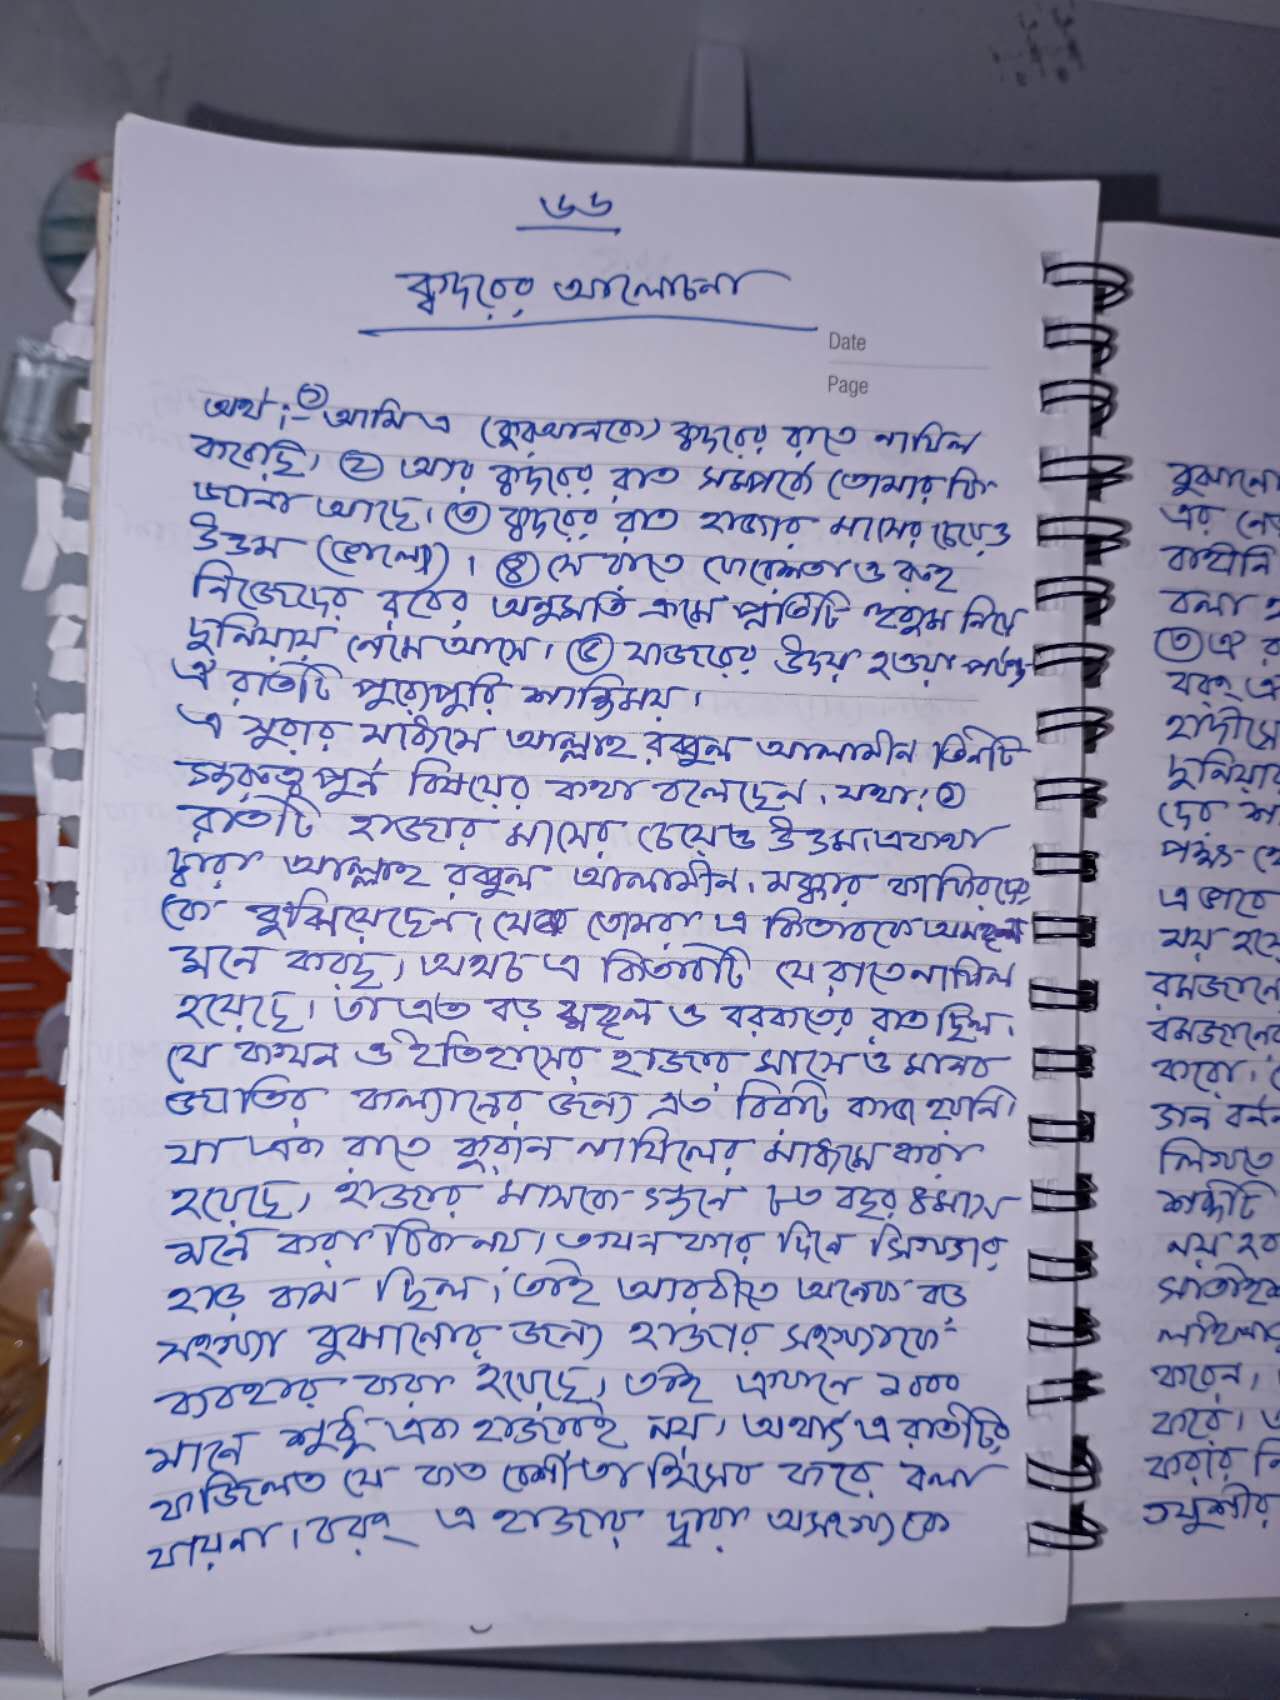 ৬৬
ক্বদরের আলোচনা
Date
Page
অর্থ :- ① আমি এ (কুরআনকে) ক্বদরের রাতে নাযিল
করেছি। ② আর ক্বদরের রাত সম্পর্কে তোমার কি
জানা আছে। ③ ক্বদরের রাত হাজার মাসের চেয়েও
উত্তম (ভালো)। ④ সে রাতে ফেরেশতা ও রুহ
নিজেদের রবের অনুমতি ক্রমে প্রতিটি হুকুম নিয়ে
দুনিয়ায় নেমে আসে। ⑤ ফাজরের উদয় হওয়া পর্যন্ত
ঐ রাতটি পুরোপুরি শান্তিময়।
এ সুরার মাধ্যমে আল্লাহ রব্বুল আলামীন তিনটি
গুরুত্ব পূর্ন বিষয়ের কথা বলেছেন। যথা: ①
রাতটি হাজার মাসের চেয়েও উত্তম। একথা
দ্বারা আল্লাহ রব্বুল আলামীন। মক্কার কাফিরদের
কে বুঝিয়েছেন। যে তোমরা এ কিতাবকে অমঙ্গল
মনে করছ, অথচ এ কিতাবটি যে রাতে নাযিল
হয়েছে। তা এত বড় মঙ্গল ও বরকতের রাত ছিল।
যে কখন ও ইতিহাসের হাজার মাসে ও মানব
জাতির কল্যানের জন্য এত বিরাট কাজ হয়নি।
যা এক রাতে কুরান নাযিলের মাধ্যমে করা
হয়েছে, হাজার মাসকে গুনে ৮৩ বছর ৪ মাস
মনে করা ঠিক নয়। তখন কার দিনে
হাড় বাম ছিল। তাই আরবীতে অনেক বড়
সংখ্যা বুঝানোর জন্য হাজার সংখ্যাকে
ব্যবহার করা হয়েছে, তাই এখানে ১০০০
মানে শুধু এক হাজারই নয়। অর্থাৎ এ রাতটির
ফাজিলত যে কত বেশী তা হিসেব করে বলা
যায়না। বরং এ হাজার দ্বারা অসংখ্যকে
বুঝানো
এর
বলা
③ ঐ
বরং
হাদীসে
দুনিয়ার
দের
এ ভাবে
রমজানে
রমজানের
করো।
লিখতে
শব্দটি
নয়
করেন।
করে।
করার